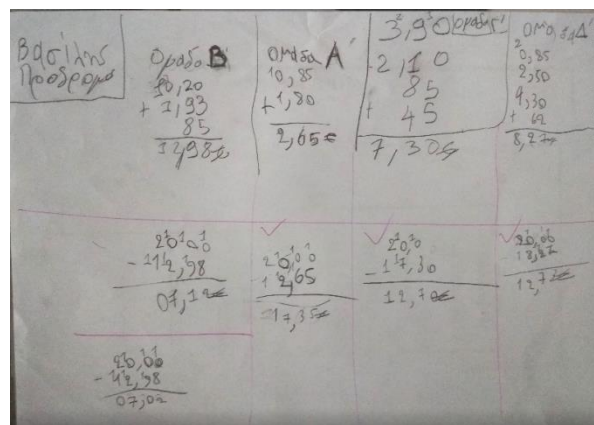 Βασίλης
Πρόδρομος
Ομάδα Β΄
10,20
+ 1,93
85
12,98€
Ομάδα Α΄
0,85
+1,80
2,65€
3,90 Ομάδα Γ΄
2,10
85
+ 45
7,30€
Ομάδα Δ΄
0,85
2,50
4,30
+ 62
8,27€
20,00
- 12,98
07,12€
20,00
- 2,65
17,35€
20,00
- 7,30
12,70€
20,00
- 8,27
12,73€
20,00
- 12,98
07,02